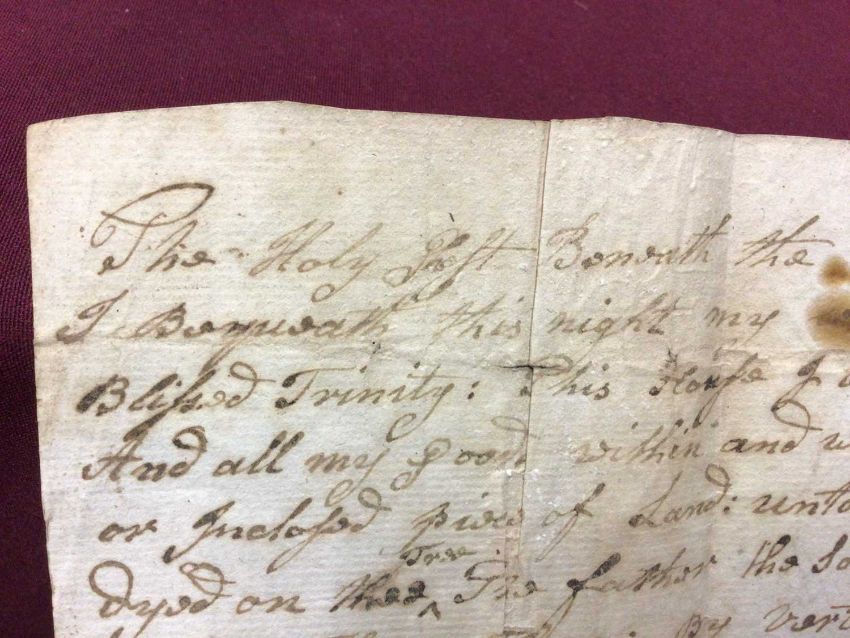 The Holy Gost Beneath the
I Bequeath this night my
Blissed Trinity: This House I
And all my Good within and
or Inclosed Piece of Land: unto
Dyed on thee ^ Tree The father the
By vert